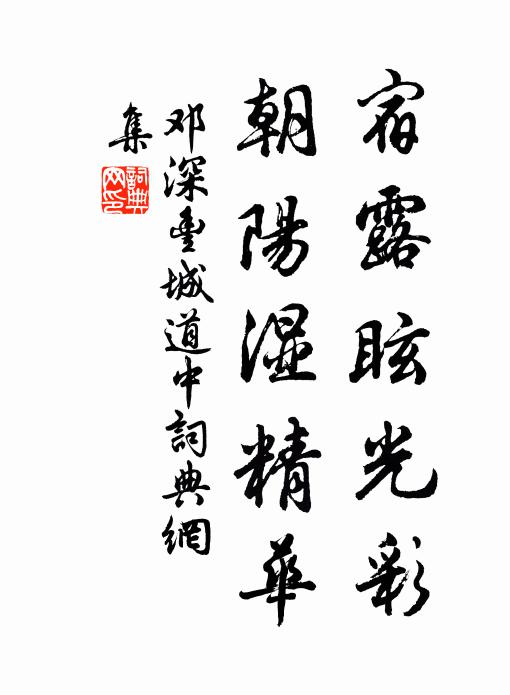 宿露眩光彩
朝陽湿精華
邓深豊城道中詞典網
集
詞典網印